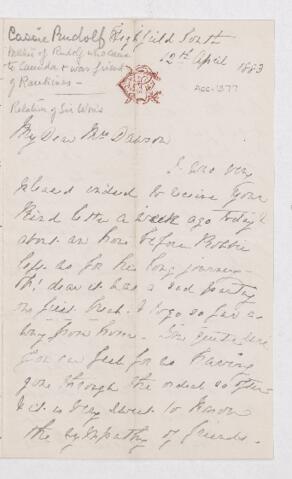 Cassie Rudolf
Mother of Rudolf who came
to Canada & was friend
of Rankines -
Relation of Sir Wm's
Highfield South
12th April
1883
ACC-1377
My Dear Mrs Dawson
I was very
pleased indeed to receive your
kind letter a week ago today
about an hour before Robbie
left us for his long journey
Oh! dear it was a sad parting
the first break & to go so far a
way from home. You
you can feel for us having
gone through the ordeal so often
& it is very sweet to know
the sympathy of friends.